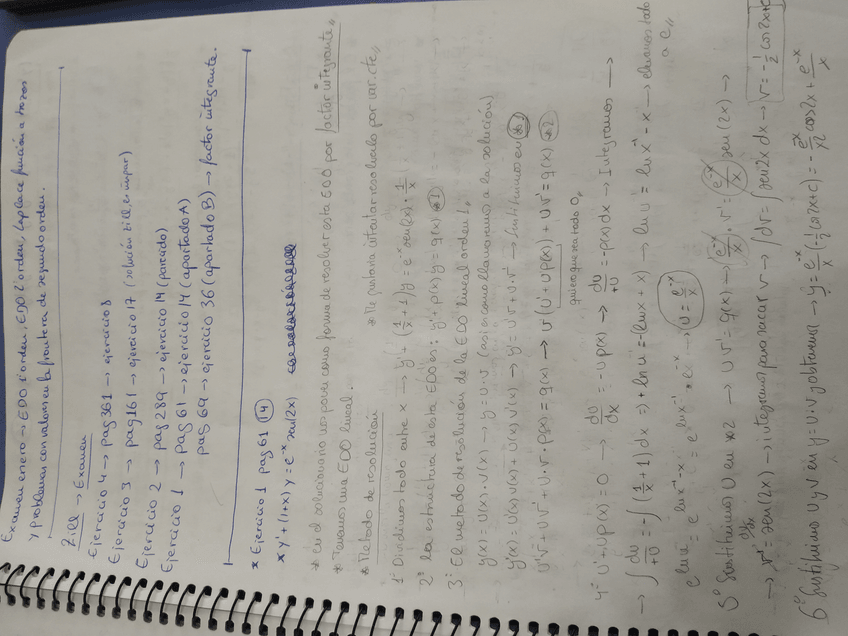 Examen enero → EDO 1º orden, EDO 2º orden, Laplace función a trozos
y problemas con valores en la frontera de segundo orden.
Zill → Examen
Ejercicio 4 → pag 361 → ejercicio 8
Ejercicio 3 → pag 161 → ejercicio 17 (solución zill, es impar)
Ejercicio 2 → pag 289 → ejercicio 14 (parecido)
Ejercicio 1 → pag 61 → ejercicio 14 (apartado A)
pag 69 → ejercicio 36 (apartado B) → factor integrante.
* Ejercicio 1 pag 61 (14)
* x y' + (1+x) y = e^-x sen(2x)
* En el solucionario nos pone como forma de resolver esta EDO por factor integrante"
* Tenemos una EDO lineal.
* Método de resolución * Me gustaría intentar resolverlo por var. cte"
1º Dividimos todo entre x → y' + (1/x + 1) y = e^-x sen(2x) · 1/x
2º La estructura de esta EDO es: y' + p(x) y = g(x) *1
3º El metodo de resolución de la EDO lineal orden 1,
y(x) = u(x) · v(x) → y = u · v (asi es como llamaremos a la solución)
y'(x) = u'(x) v(x) + u(x) v'(x) → y' = u'v + u · v' → Sustituimos en *1
u'v + uv' + u · v · p(x) = g(x) → v(u' + up(x)) + uv' = g(x) *2
quiero que sea todo 0"
4º u' + up(x) = 0 → du/dx = -up(x) → du/+u = -p(x) dx → Integramos →
→ ∫ du/+u = -∫ (1/x + 1) dx → + ln u = -(ln x + x) → ln u = ln x^-1 - x → elevamos todo a e"
e^ln u = e^ln x^-1 - x = e^ln x^-1 * e^-x → u = e^-x/x
5º Sustituimos u en *2 → uv' = g(x) → e^-x/x · v' = e^-x/x sen(2x) →
→ v' = sen(2x) → integramos para sacar v → ∫dv = ∫ sen 2x dx → v = -1/2 cos 2x + c
6º Sustituimos u y v en y = u · v y obtenemos → y = e^-x/x (-1/2 cos 2x + c) = -e^-x/x2 cos 2x + e^-x/x